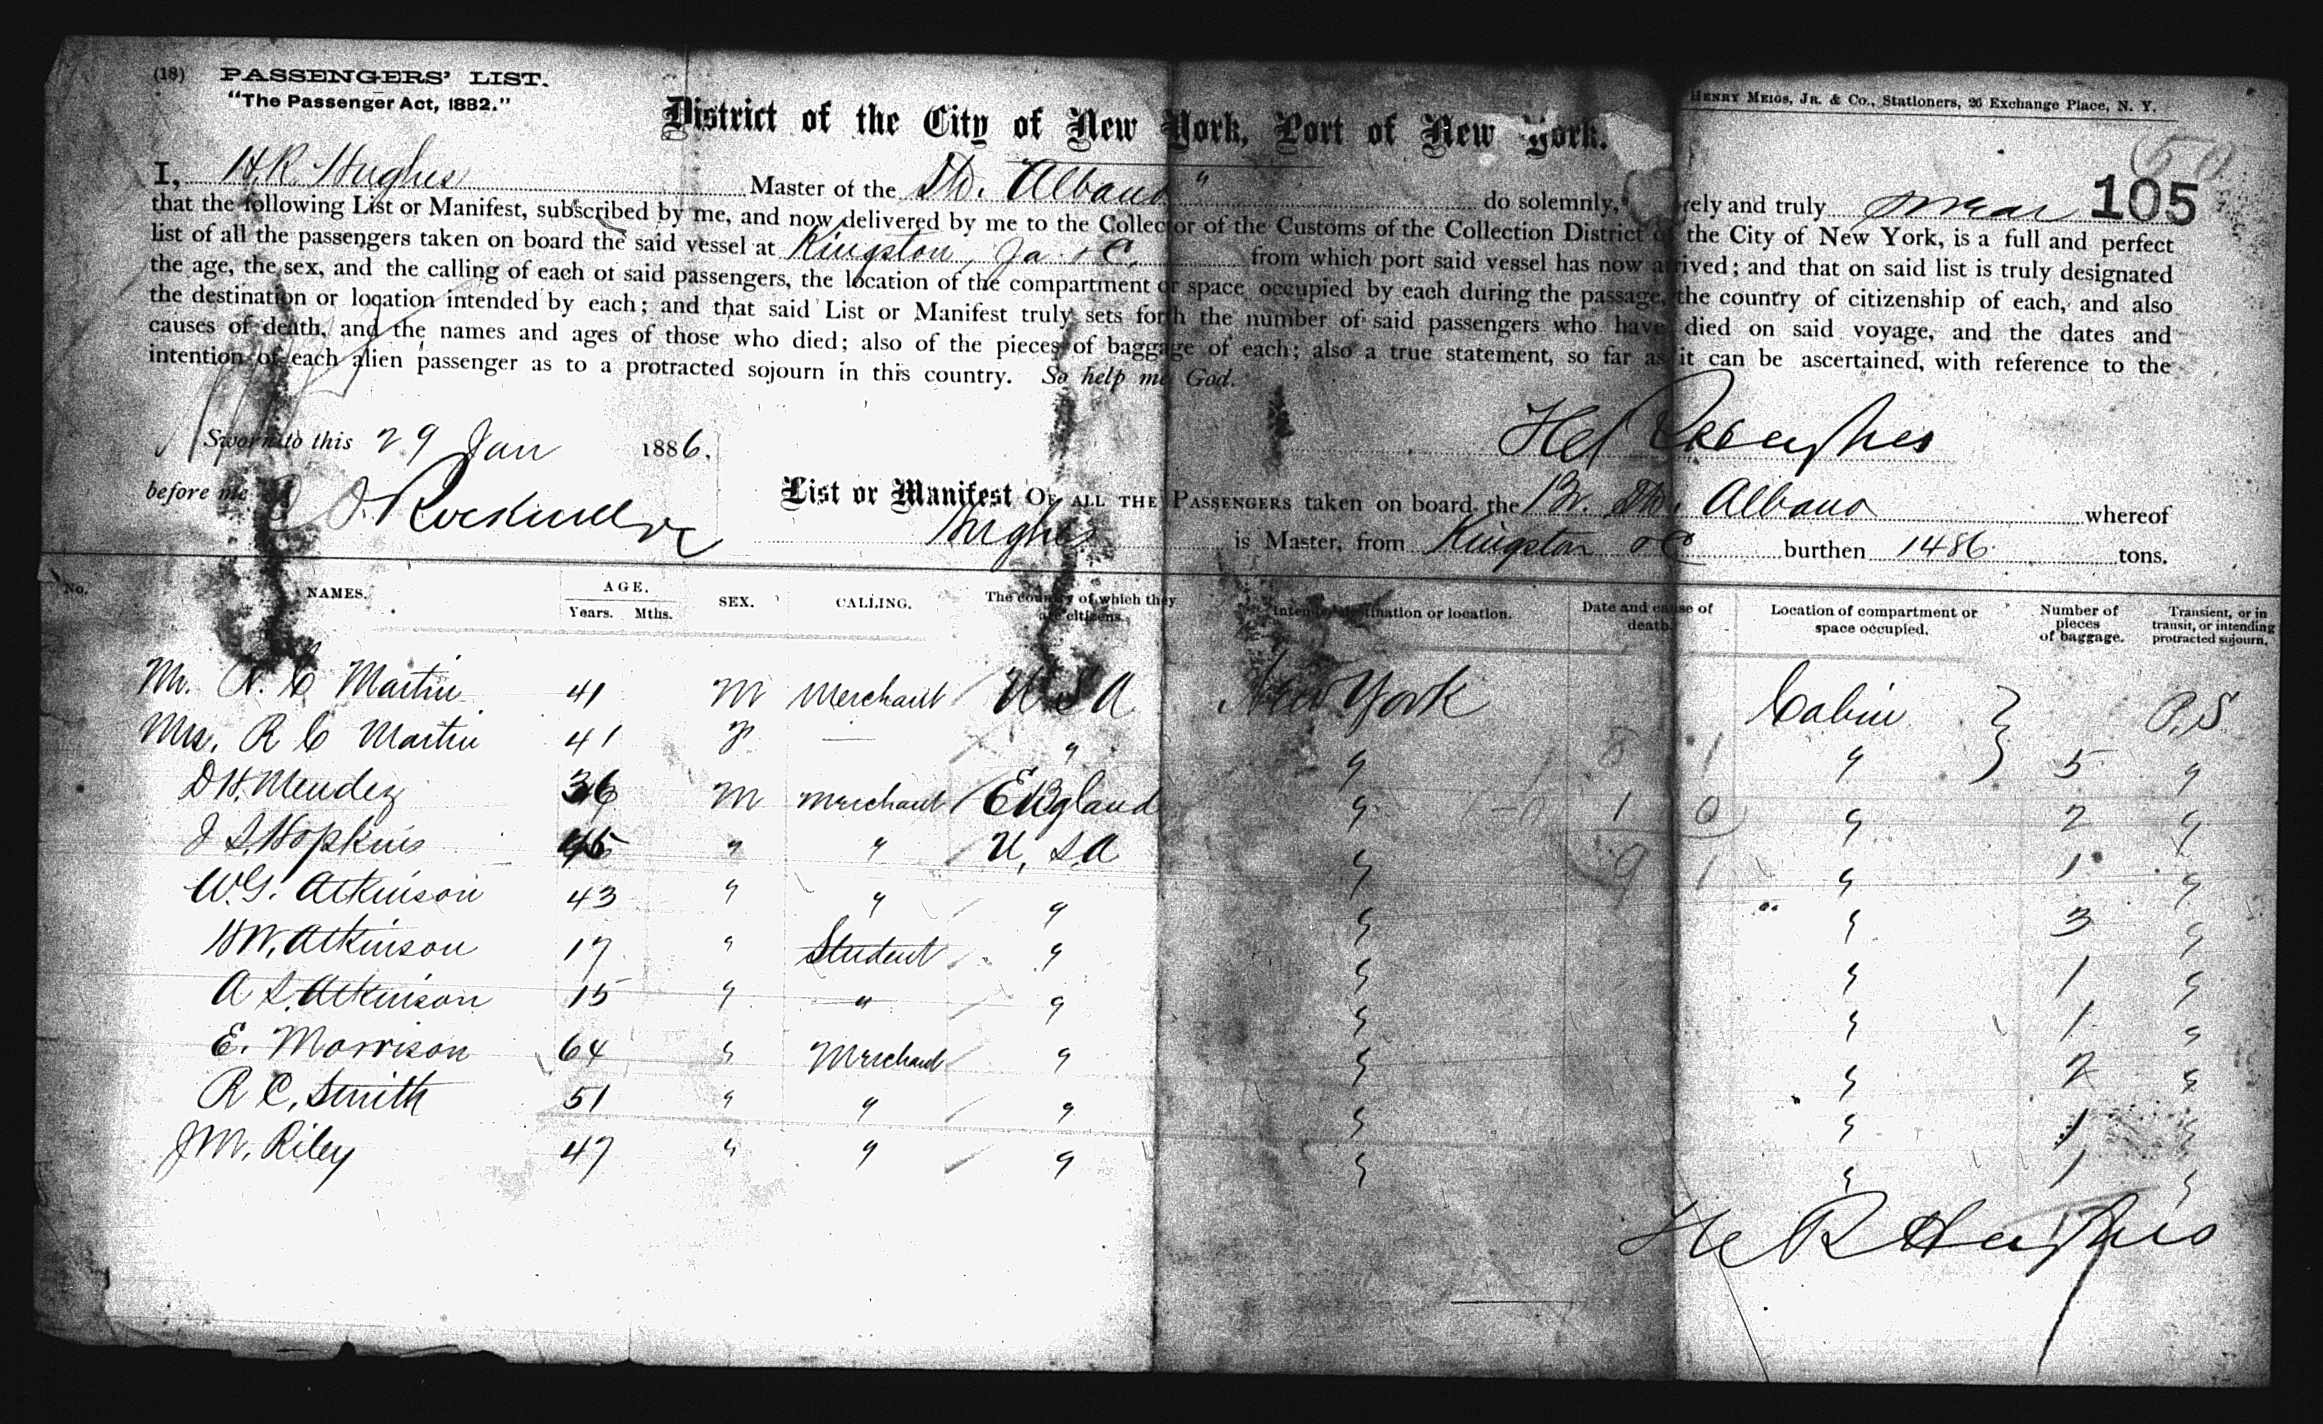 (18) PASSENGERS' LIST.
"The Passenger Act, 1882."
HENRY MEIGS, JR. & CO., Stationers, 26 Exchange Place, N. Y.
District of the City of New York, Port of New York.
50
105
I, H.R. Hughes Master of the Str. Albano" do solemnly, rely and truly swear
that the following List or Manifest, subscribed by me, and now delivered by me to the Collector of the Customs of the Collection District of the City of New York, is a full and perfect
list of all the passengers taken on board the said vessel at Kingston, Ja &c. from which port said vessel has now arrived; and that on said list is truly designated
the age, the sex, and the calling of each of said passengers, the location of the compartment or space occupied by each during the passage, the country of citizenship of each, and also
the destination or location intended by each; and that said List or Manifest truly sets forth the number of said passengers who have died on said voyage, and the dates and
causes of death, and the names and ages of those who died; also of the pieces of baggage of each; also a true statement, so far as it can be ascertained, with reference to the
intention of each alien passenger as to a protracted sojourn in this country. So help me God.
Sworn to this 29 Jan 1886.
before me
List or Manifest OF ALL THE PASSENGERS taken on board the Br. Str. Albano whereof
Hughes is Master, from Kingston &c burthen 1486 tons.
No. NAMES. AGE. Years. Mths. SEX. CALLING. The country of which they are citizens. Intended destination or location. Date and cause of death. Location of compartment or space occupied. Number of pieces of baggage. Transient, or in transit, or intending protracted sojourn.
Mr. R. C Martin 41 M Merchant U S A New York Cabin } P.S
Mrs. R C Martin 41 F — " " " } 5 "
D H. Mendez 36 M Merchant England " " 2 "
J S. Hopkins 45 " " U, S. A " " 1 "
W. G. Atkinson 43 " " " " " 3 "
H W. Atkinson 17 " Student " " " 1 "
A S. Atkinson 15 " " " " " 1 "
E. Morrison 64 " Merchant " " " 2 "
R C. Smith 51 " " " " " 1 "
J M. Riley 47 " " " " " 1 "
H R Hughes